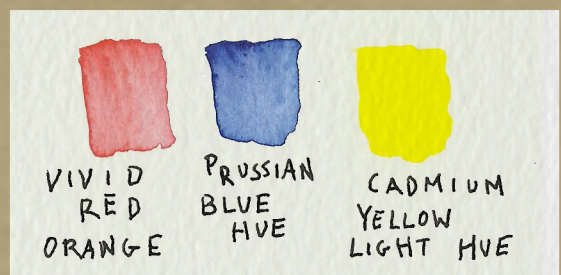 VIVID
RED
ORANGE
PRUSSIAN
BLUE
HUE
CADMIUM
YELLOW
LIGHT HUE